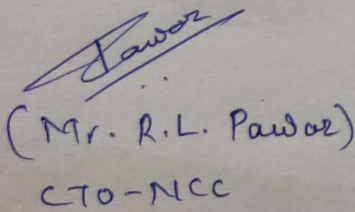 Pawar
(Mr. R.L. Pawar)
CTO-NCC